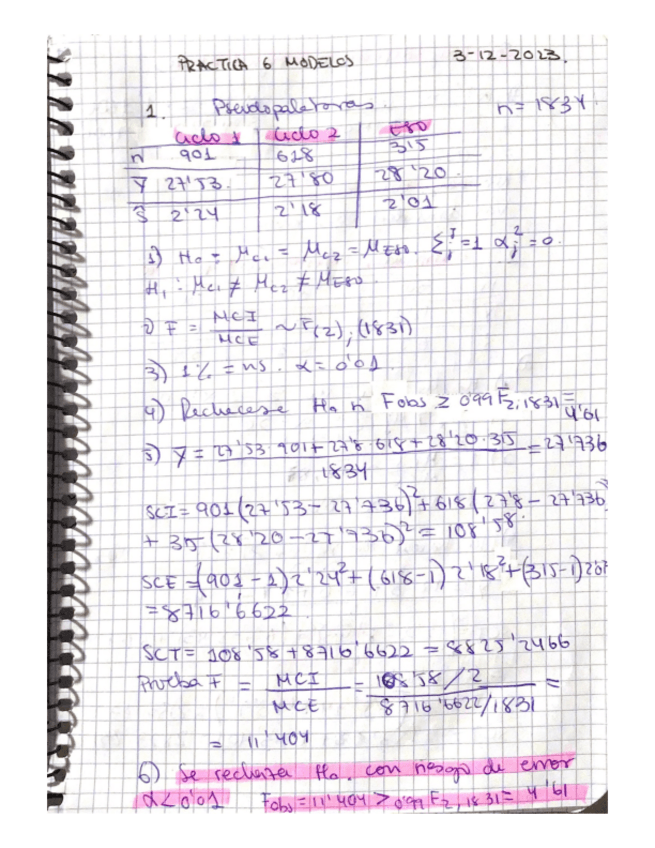 PRACTICA 6 MODELOS 3-12-2023.
1. Pseudopalabras. n=1834
Ciclo 1 Ciclo 2 ESO
n 901 618 315
Ȳ 27'53. 27'80 28'20
Ŝ 2'24 2'18 2'01
1) H₀ = μc₁ = μc₂ = μESO. Σᵢᴵ=1 αⱼ² = 0.
H₁ : μc₁ ≠ μc₂ ≠ μESO
2) F = MCI / MCE ~ F(2), (1831)
3) 1% = ns. α = 0'01.
4) Rechacese H₀ si Fobs ≥ 0'99 F2, 1831 = 4'61
5) Ȳ = 27'53·901 + 27'8·618 + 28'20·315 / 1834 = 27'736
SCI = 901(27'53 - 27'736)² + 618(27'8 - 27'736)²
+ 315(28'20 - 27'736)² = 108'58.
SCE = (901-1)2'24² + (618-1)2'18² + (315-1)2'01²
= 8716'6622
SCT = 108'58 + 8716'6622 = 8825'2466
Prueba F = MCI / MCE = 108'58/2 / 8716'6622/1831 =
= 11'404
6) Se rechaza H₀. con riesgo de error
α < 0'01 Fobs = 11'404 > 0'99 F2, 1831 = 4'61